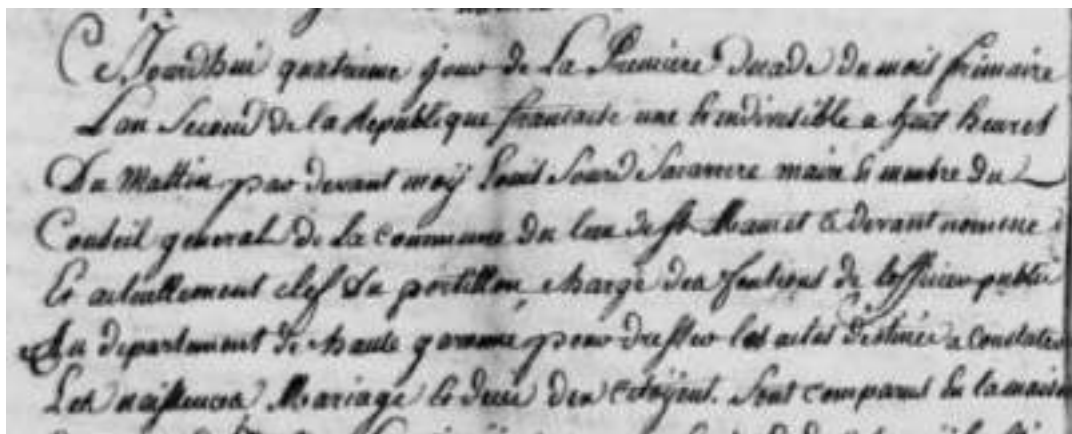 Cejourdhui quatrieme jour de La Premiere decade du mois frimaire
Lan Second de la Republique francaise une & indivisible a huit heures
Du Mattin par devant moy Louis Sourd maire & membre du
Conseil general de La commune du lieu de st Mamet ci devant nommé
Et actuellement clef du portillon, chargé des fontions de lofficier public
du departement de haute garonne pour dresser les actes destinés a constater
Les naissances Mariage & deces des citoyens. Sont comparus En la maison